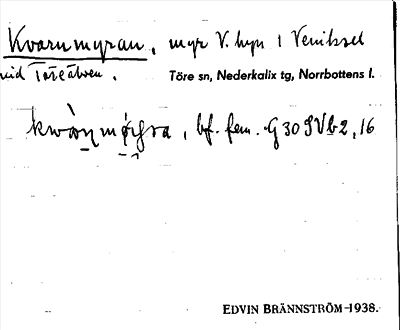 Kvarnmyran, myr V. byn i Vemiksel
vid Töreälven.
Töre sn, Nederkalix tg, Norrbottens l.
bf. fem. G 30 SV b 2, 16
EDVIN BRÄNNSTRÖM 1938.